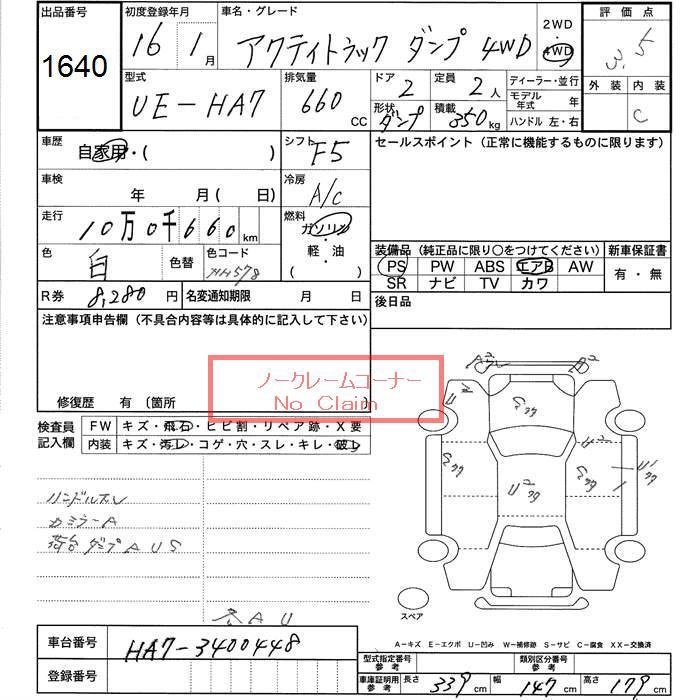 出品番号 1640
初度登録年月 16 1月
車名・グレード アクティトラック ダンプ 4WD
2WD 4WD
評価点 3.5
型式 UE-HA7
排気量 660 CC
ドア 2
定員 2人
形状 ダンプ
積載 350kg
ディーラー・並行
モデル年式 年
ハンドル 左・右
外装 内装 C
車歴 自家用・( )
シフト F5
セールスポイント(正常に機能するものに限ります)
車検 年 月( 日)
冷房 A/C
走行 10万0千660km
燃料 ガソリン 軽・油 ( )
色 白 色替 色コード NH578
装備品(純正品に限り○をつけてください) 新車保証書
PS PW ABS エアB AW 有・無
SR ナビ TV カワ
R券 8,280円 名変通知期限 月 日
後日品
注意事項申告欄(不具合内容等は具体的に記入して下さい)
ノークレームコーナー
No Claim
修復歴 有〔箇所
検査員記入欄
FW キズ・飛石・ヒビ割・リペア跡・X要
内装 キズ・汚レ・コゲ・穴・スレ・キレ・破レ
ハンドルスレ
カミラーA
荷台ダンプAUS
AU
スペア
A-キズ E-エクボ U-凹み W-補修跡 S-サビ C-腐食 XX-交換済
車台番号 HA7-3400448
登録番号
型式指定番号参考 類別区分番号参考
車庫証明用参考 長さ 339cm 幅 147cm 高さ 179cm